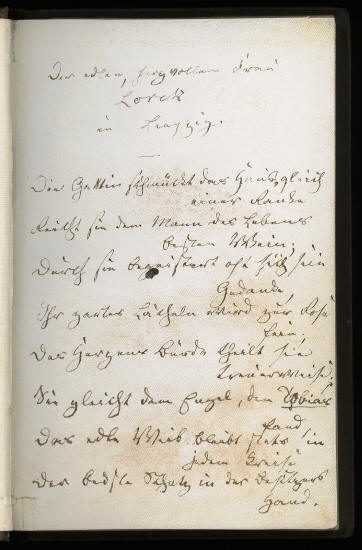 Der edlen, herzvollen Frau
Lorck
in Leipzig.
Die Gattin schmückt das Haus, gleich
einer Ranke
Reicht sie dem Mann des Lebens
besten Wein;
Durch sie begeistert oft sich sein
Gedanke,
Ihr zartes Lächeln wird zur Rose
fein.
Des Herzens Bürde theilt sie
Sie gleicht dem Engel, den Tobias
fand,
Das edle Weib bleibt stets in
jedem Kreise
Der beste Schatz in des Besitzers
Hand.